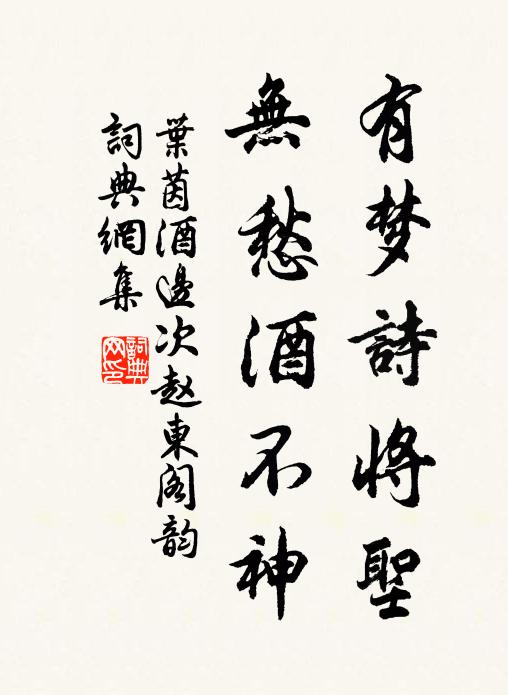 有梦詩將聖
無愁酒不神
葉茵酒邊次赵東阁韵
詞典網集
詞典网印